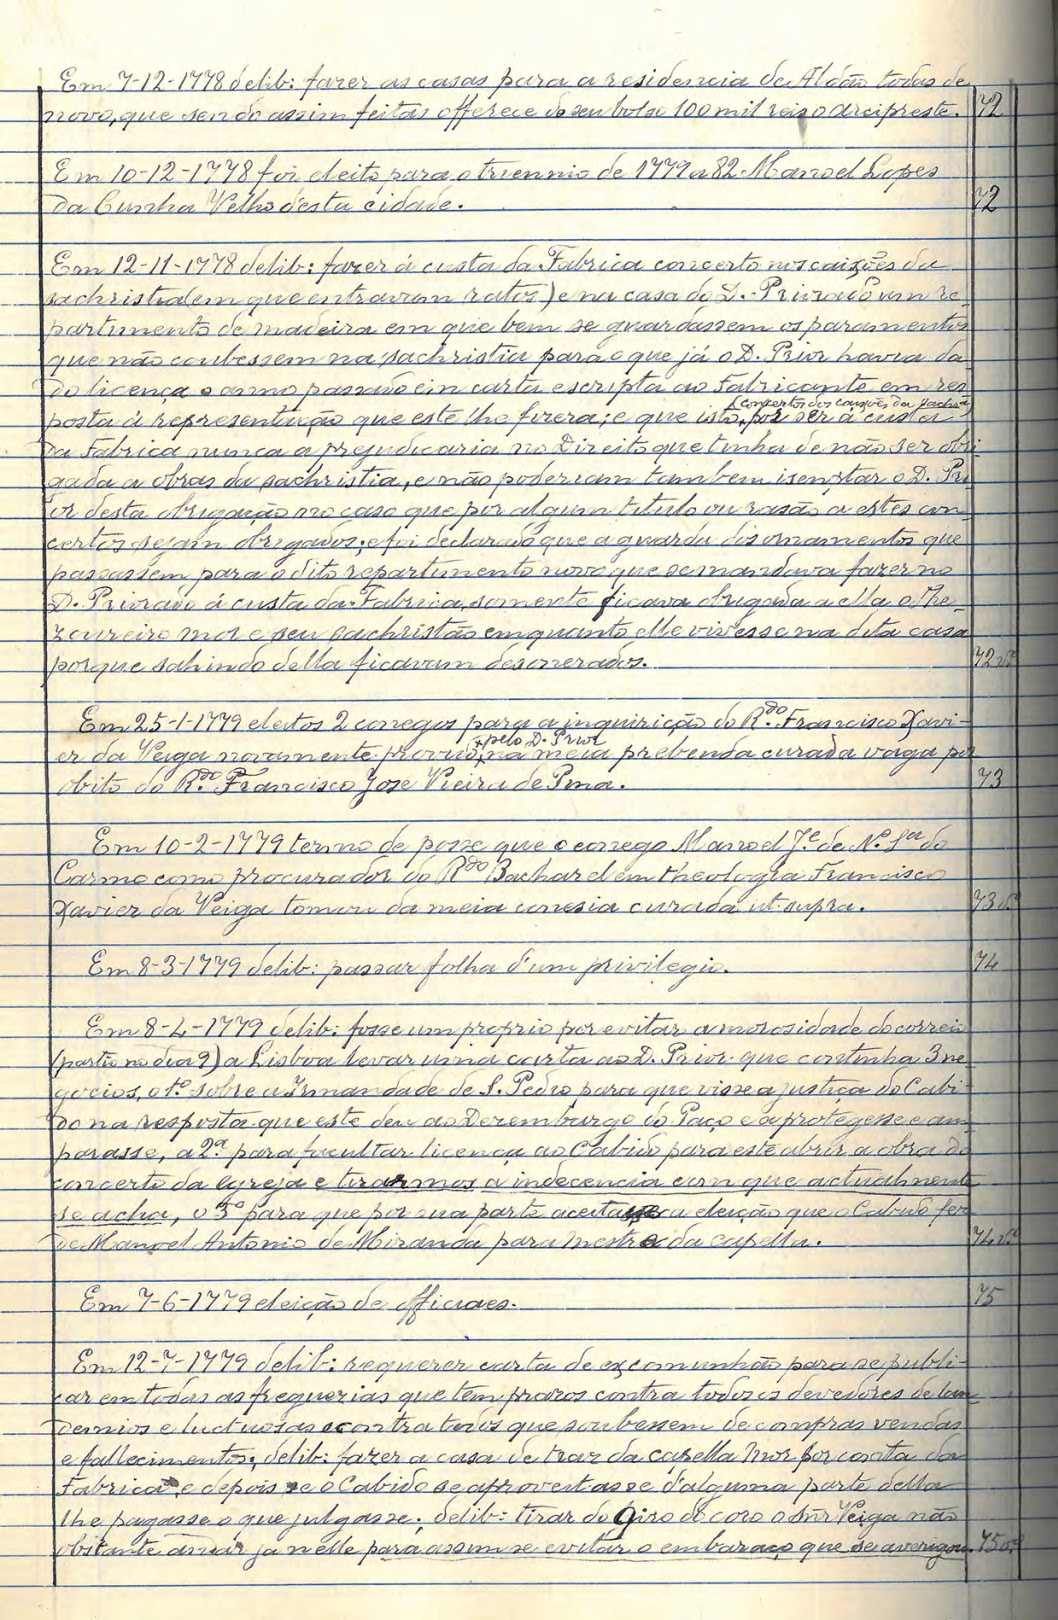 Em 7-12-1778 delib: fazer as casas para a residencia de Aldão todas de
novo, que sendo assim feitas offerece do seu bolso 100 mil reis o arcipreste. 72
Em 10-12-1778 foi eleito para o triennio de 1779 a 82. Manoel Lopes
da Cunha Velho desta cidade. 72
Em 12-11-1778 delib: fazer á custa da Fabrica concerto nos caixões da
sachristia (em que entravam ratos) e na casa do D. Priorado um re-
partimento de madeira em que bem se guardassem os paramentos
que não coubessem na sachristia para o que já o D. Prior havia da-
do licença o anno passado em carta escripta ao Fabricante em res-
(concertos dos caixões da sachristia)
posta á representação que este lhe fizera; e que isto, por ser á custa
da Fabrica nunca a prejudicaria no Direito que tinha de não ser obri-
gada a obras da sachristia, e não poderiam tambem isemptar o D. Pri-
or desta obrigação no caso que por algum titulo ou rasão a estes con-
certos sejam obrigados; e foi declarado que a guarda dos ornamentos que
passassem para o dito repartimento novo que se mandava fazer no
D. Priorado á custa da Fabrica, somente ficava obrigada a ella o The-
zoureiro mor e seu sachristão emquanto elle vivesse na dita casa
porque sahindo della ficavam desonerados. 72 v.º
Em 25-1-1779 eleitos 2 conegos para a inquirição do R.do Francisco Xavi-
pelo D. Prior
er da Veiga novamente provido, na meia prebenda curada vaga por
obito do R.do Francisco Jose Vieira de Pina. 73
Em 10-2-1779 termo de posse que o conego Manoel J.e de N.ª S.ra do
Carmo como procurador do R.do Bacharel em theologia Francisco
Xavier da Veiga tomou da meia conesia curada ut supra. 73 v.º
Em 8-3-1779 delib: passar folha d'um privilegio. 74
Em 8-4-1779 delib: fosse um proprio por evitar a morosidade do correio
(partio no dia 9) a Lisboa levar uma carta ao D. Prior que continha 3 ne-
gocios, o 1.º sobre a Irmandade de S. Pedro para que visse a justiça do Cabi-
do na resposta que este deu ao Dezembargo do Paço e a protegesse e am-
parasse, a 2.ª para facultar licença ao Cabido para este abrir a obra do
concerto da Egreja e tirarmos a indecencia com que actualmente
se acha, o 3º para que por sua parte aceitasse a eleição que o Cabido fez
de Manoel Antonio de Miranda para mestre da capella. 74 v.º
Em 7-6-1779 eleição de officiaes. 75
Em 12-7-1779 delib: requerer carta de excomunhão para se publi-
car em todas as freguezias que têm prazos contra todos os devedores de lau-
demios e luctuosas e contra todos que soubessem de compras vendas
e fallecimentos; delib: fazer a casa de traz da capella mor por conta da
Fabrica e depois se o Cabido se aproveitasse d'alguma parte della
lhe pagasse o que julgasse; delib: tirar do giro do coro o snr Veiga não
obstante andar ja nelle para assim se evitar o embaraço que se averigou. 75 v.º